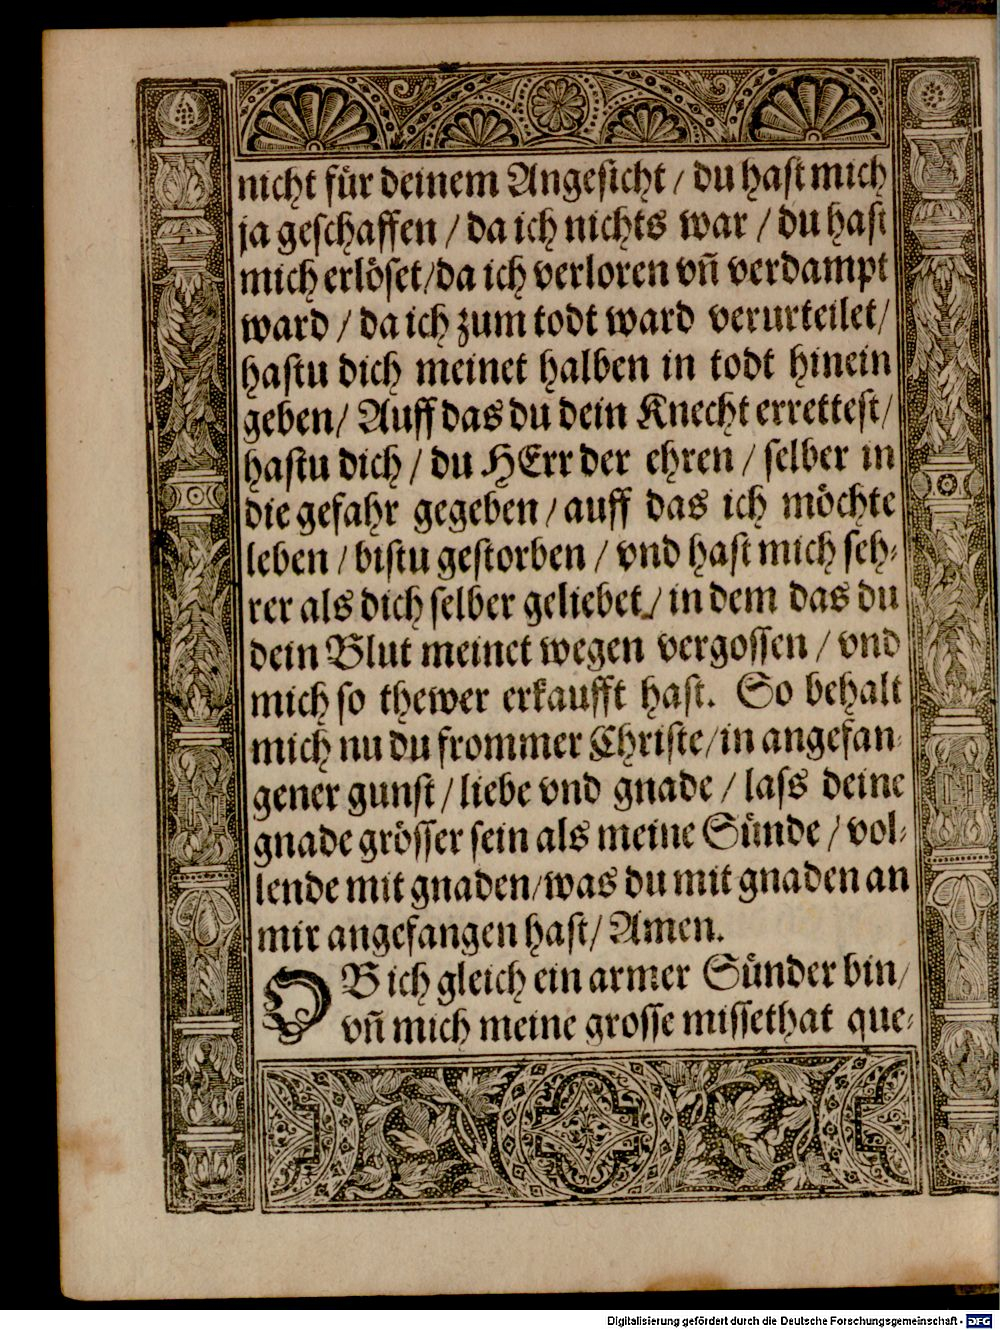 nicht für deinem Angesicht / du hast mich
ja geschaffen / da ich nichts war / du hast
mich erlöset/da ich verloren vñ verdampt
ward / da ich zum todt ward verurteilet/
hastu dich meinet halben in todt hinein
geben/ Auff das du dein Knecht errettest/
hastu dich / du HErr der ehren / selber in
die gefahr gegeben / auff das ich möchte
leben / bistu gestorben / vnd hast mich seh-
rer als dich selber geliebet / in dem das du
dein Blut meinet wegen vergossen / vnd
mich so thewer erkaufft hast. So behalt
mich nu du frommer Christe/in angefan-
gener gunst / liebe vnd gnade / lass deine
gnade grösser sein als meine Sünde / vol-
lende mit gnaden/was du mit gnaden an
mir angefangen hast/ Amen.
OB ich gleich ein armer Sünder bin/
vñ mich meine grosse missethat que-
Digitalisierung gefördert durch die Deutsche Forschungsgemeinschaft - DFG